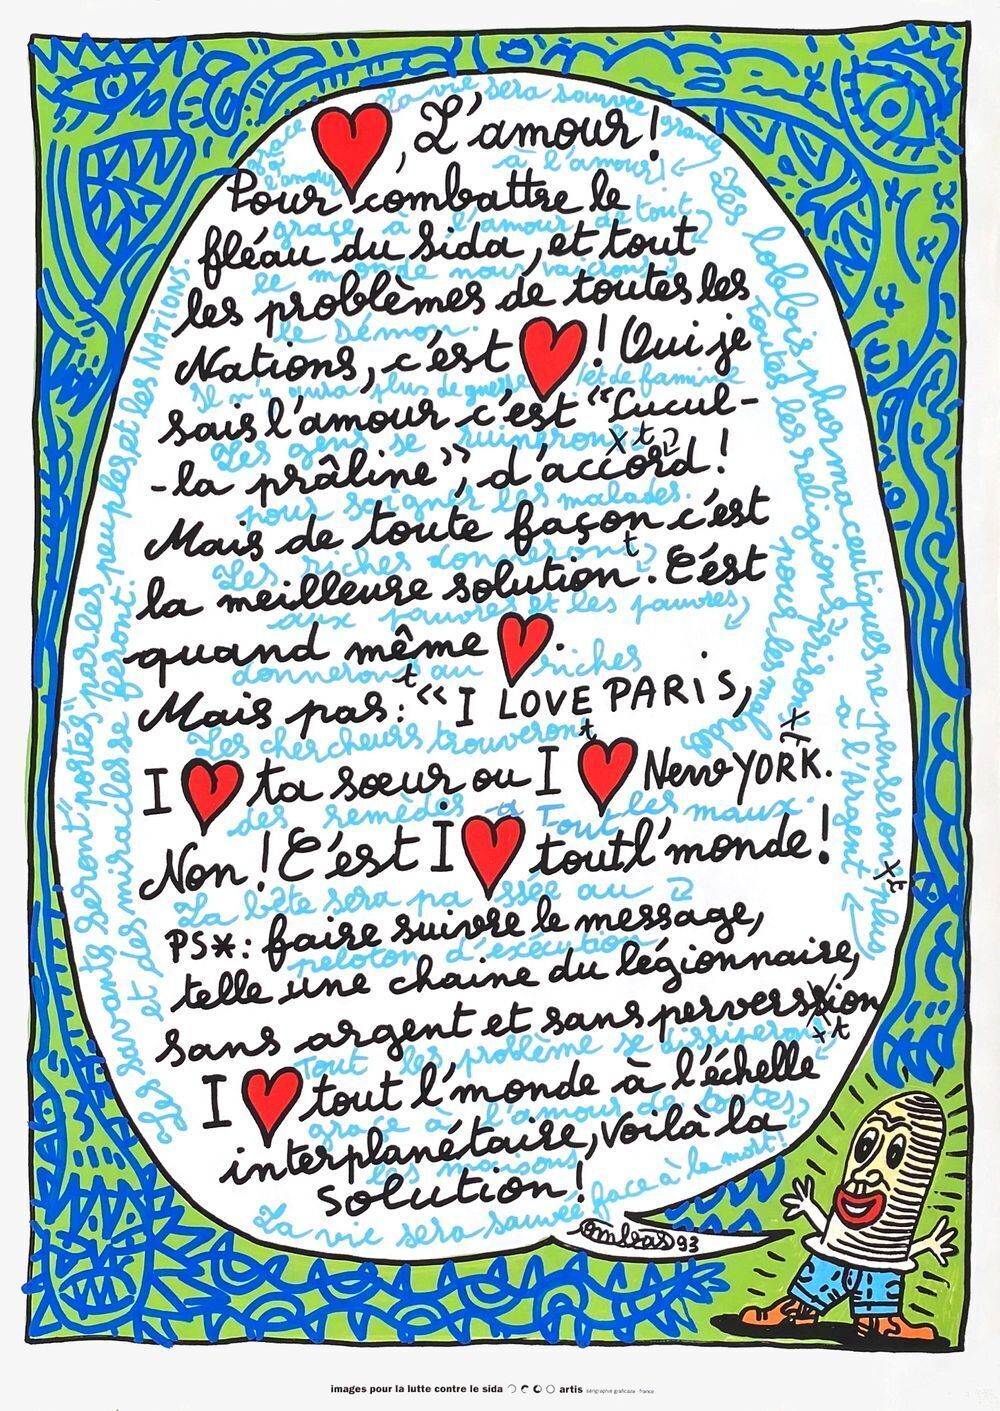 ♥, L'amour!
Pour combattre le
fléau du Sida, et tout
les problèmes de toutes les
Nations, c'est ♥! Oui je
sais l'amour c'est "Cucul-
-la prâline", d'accord!
Mais de toute façon c'est
la meilleure solution. C'est
quand même ♥.
Mais pas: "I LOVE PARIS,
I ♥ ta sœur ou I ♥ New YORK.
Non! C'est I ♥ tout l'monde!
PS*: faire suivre le message,
telle une chaine du légionnaire,
sans argent et sans perversion
I ♥ tout l'monde à l'échelle
interplanétaire, voilà la
solution!
La vie sera sauvée grace
à l'amour!
grace à l'amour de tout
le monde nous vaincrons
le Démon.
Il n'y aura plus de guerre et de famine
Les gens se ruineront
pour soigner les malades.
Les riches donneront
aux pauvres et les pauvres,
donneront au riches
Les chercheurs trouveront
des remèdes a Tout les maux.
La bête sera passée au
peloton d'exécution
Tout les problème se dissiperont
grace à l'amour de toutes,
les maisons
La vie sera sauvée face à la mort!
Les lobbis pharmaceutiques ne penseront plus
a l'Argent
Toutes les religions
nous les
Les savants seront "portés" par les peuples et les NATIONS.
et des miracles se feront.
Combas 93
images pour la lutte contre le sida artis sérigraphie graficaza france